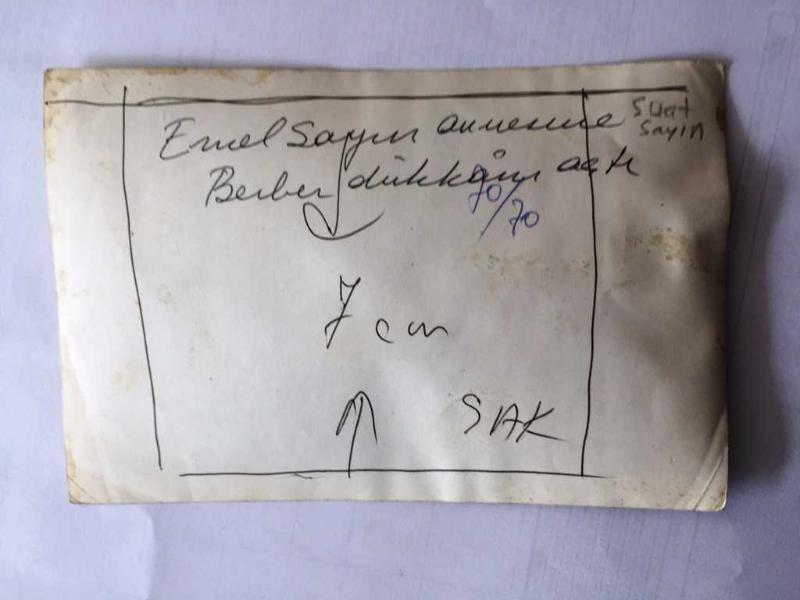 Emel Sayın annesine
Berber dükkanı açtı
Suat
Sayın
70/70
7 cm
SAK